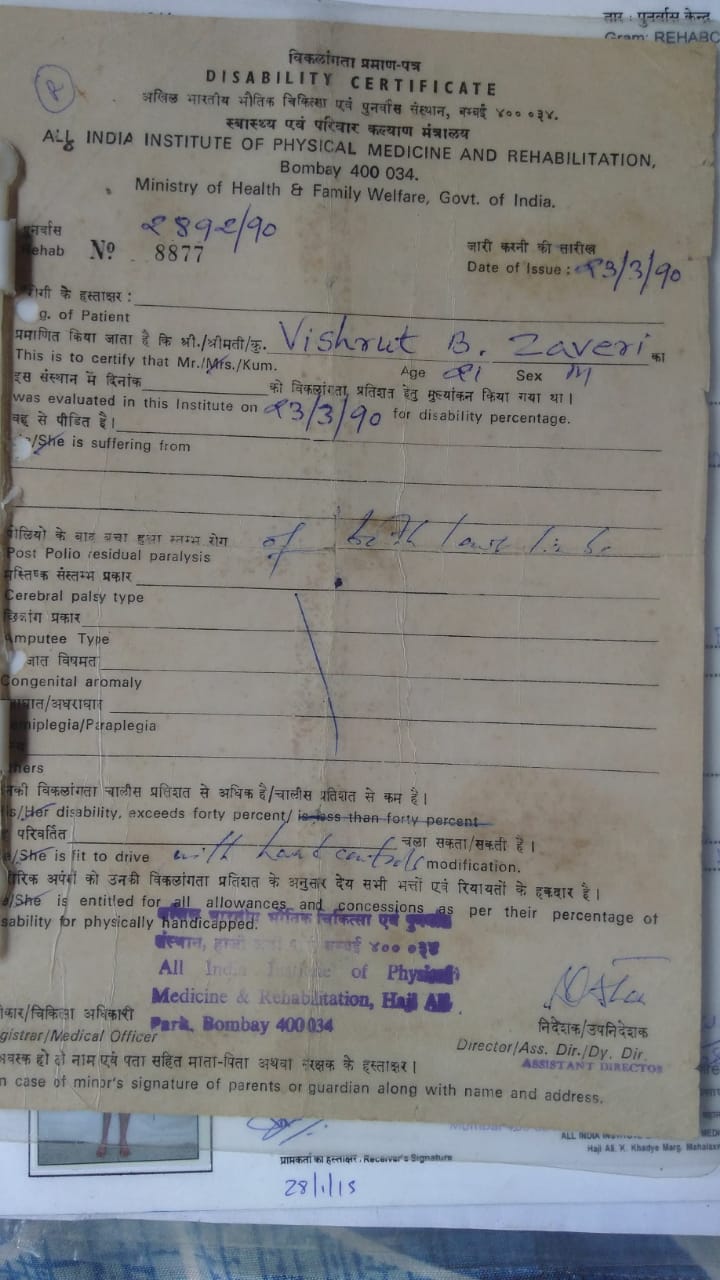 तार : पुनर्वास केन्द्र
Gram: REHABC
R
विकलांगता प्रमाण-पत्र
DISABILITY CERTIFICATE
अखिल भारतीय भौतिक चिकित्सा एवं पुनर्वास संस्थान, बम्बई ४०० ०३४.
स्वास्थ्य एवं परिवार कल्याण मंत्रालय
ALL INDIA INSTITUTE OF PHYSICAL MEDICINE AND REHABILITATION,
Bombay 400 034.
Ministry of Health & Family Welfare, Govt. of India.
पुनर्वास 2892/90
Rehab No 8877
जारी करनी की तारीख
Date of Issue : 23/3/90
रोगी के हस्ताक्षर :
g. of Patient
प्रमाणित किया जाता है कि श्री./श्रीमती/कु. Vishrut B. Zaveri का
This is to certify that Mr./Mrs./Kum. Age 21 Sex M
इस संस्थान में दिनांक को विकलांगता प्रतिशत हेतु मुल्यांकन किया गया था।
was evaluated in this Institute on 23/3/90 for disability percentage.
वह से पीडित है।
/She is suffering from
पोलियो के बाद बचा हुआ स्तम्भ रोग
Post Polio residual paralysis of both lower limbs
मस्तिष्क संस्तम्भ प्रकार
Cerebral palsy type
छिन्नांग प्रकार
Amputee Type
जात विषमता
Congenital aromaly
घात/अधराघात
miplegia/Paraplegia
hers
नकी विकलांगता चालीस प्रतिशत से अधिक है/चालीस प्रतिशत से कम है।
is/Her disability, exceeds forty percent/ is less than forty percent
परिवर्तित चला सकता/सकती है।
/She is fit to drive with hand controls modification.
रिक अपंगों को उनकी विकलांगता प्रतिशत के अनुसार देय सभी भत्तों एवं रियायतों के हकदार है।
/She is entitled for all allowances and concessions as per their percentage of
sability for physically handicapped.
अखिल भारतीय भौतिक चिकित्सा एवं पुनर्वास
संस्थान, हाजी बम्बई ४०० ०३४
All India Institute of Physical
Medicine & Rehabilitation, Haji Ali
Park, Bombay 400 034
कार/चिकित्सा अधिकारी
gistrar/Medical Officer
निदेशक/उपनिदेशक
Director/Ass. Dir./Dy. Dir.
ASSISTANT DIRECTOR
अवस्क हो तो नाम एवं पता सहित माता-पिता अथवा संरक्षक के हस्ताक्षर।
n case of minor's signature of parents or guardian along with name and address.
ALL INDIA INSTITUTE
Haji Ali, K. Khadye Marg, Mahalaxm
प्राप्तकर्ता का हस्ताक्षर . Receiver's Signature
28/1/15